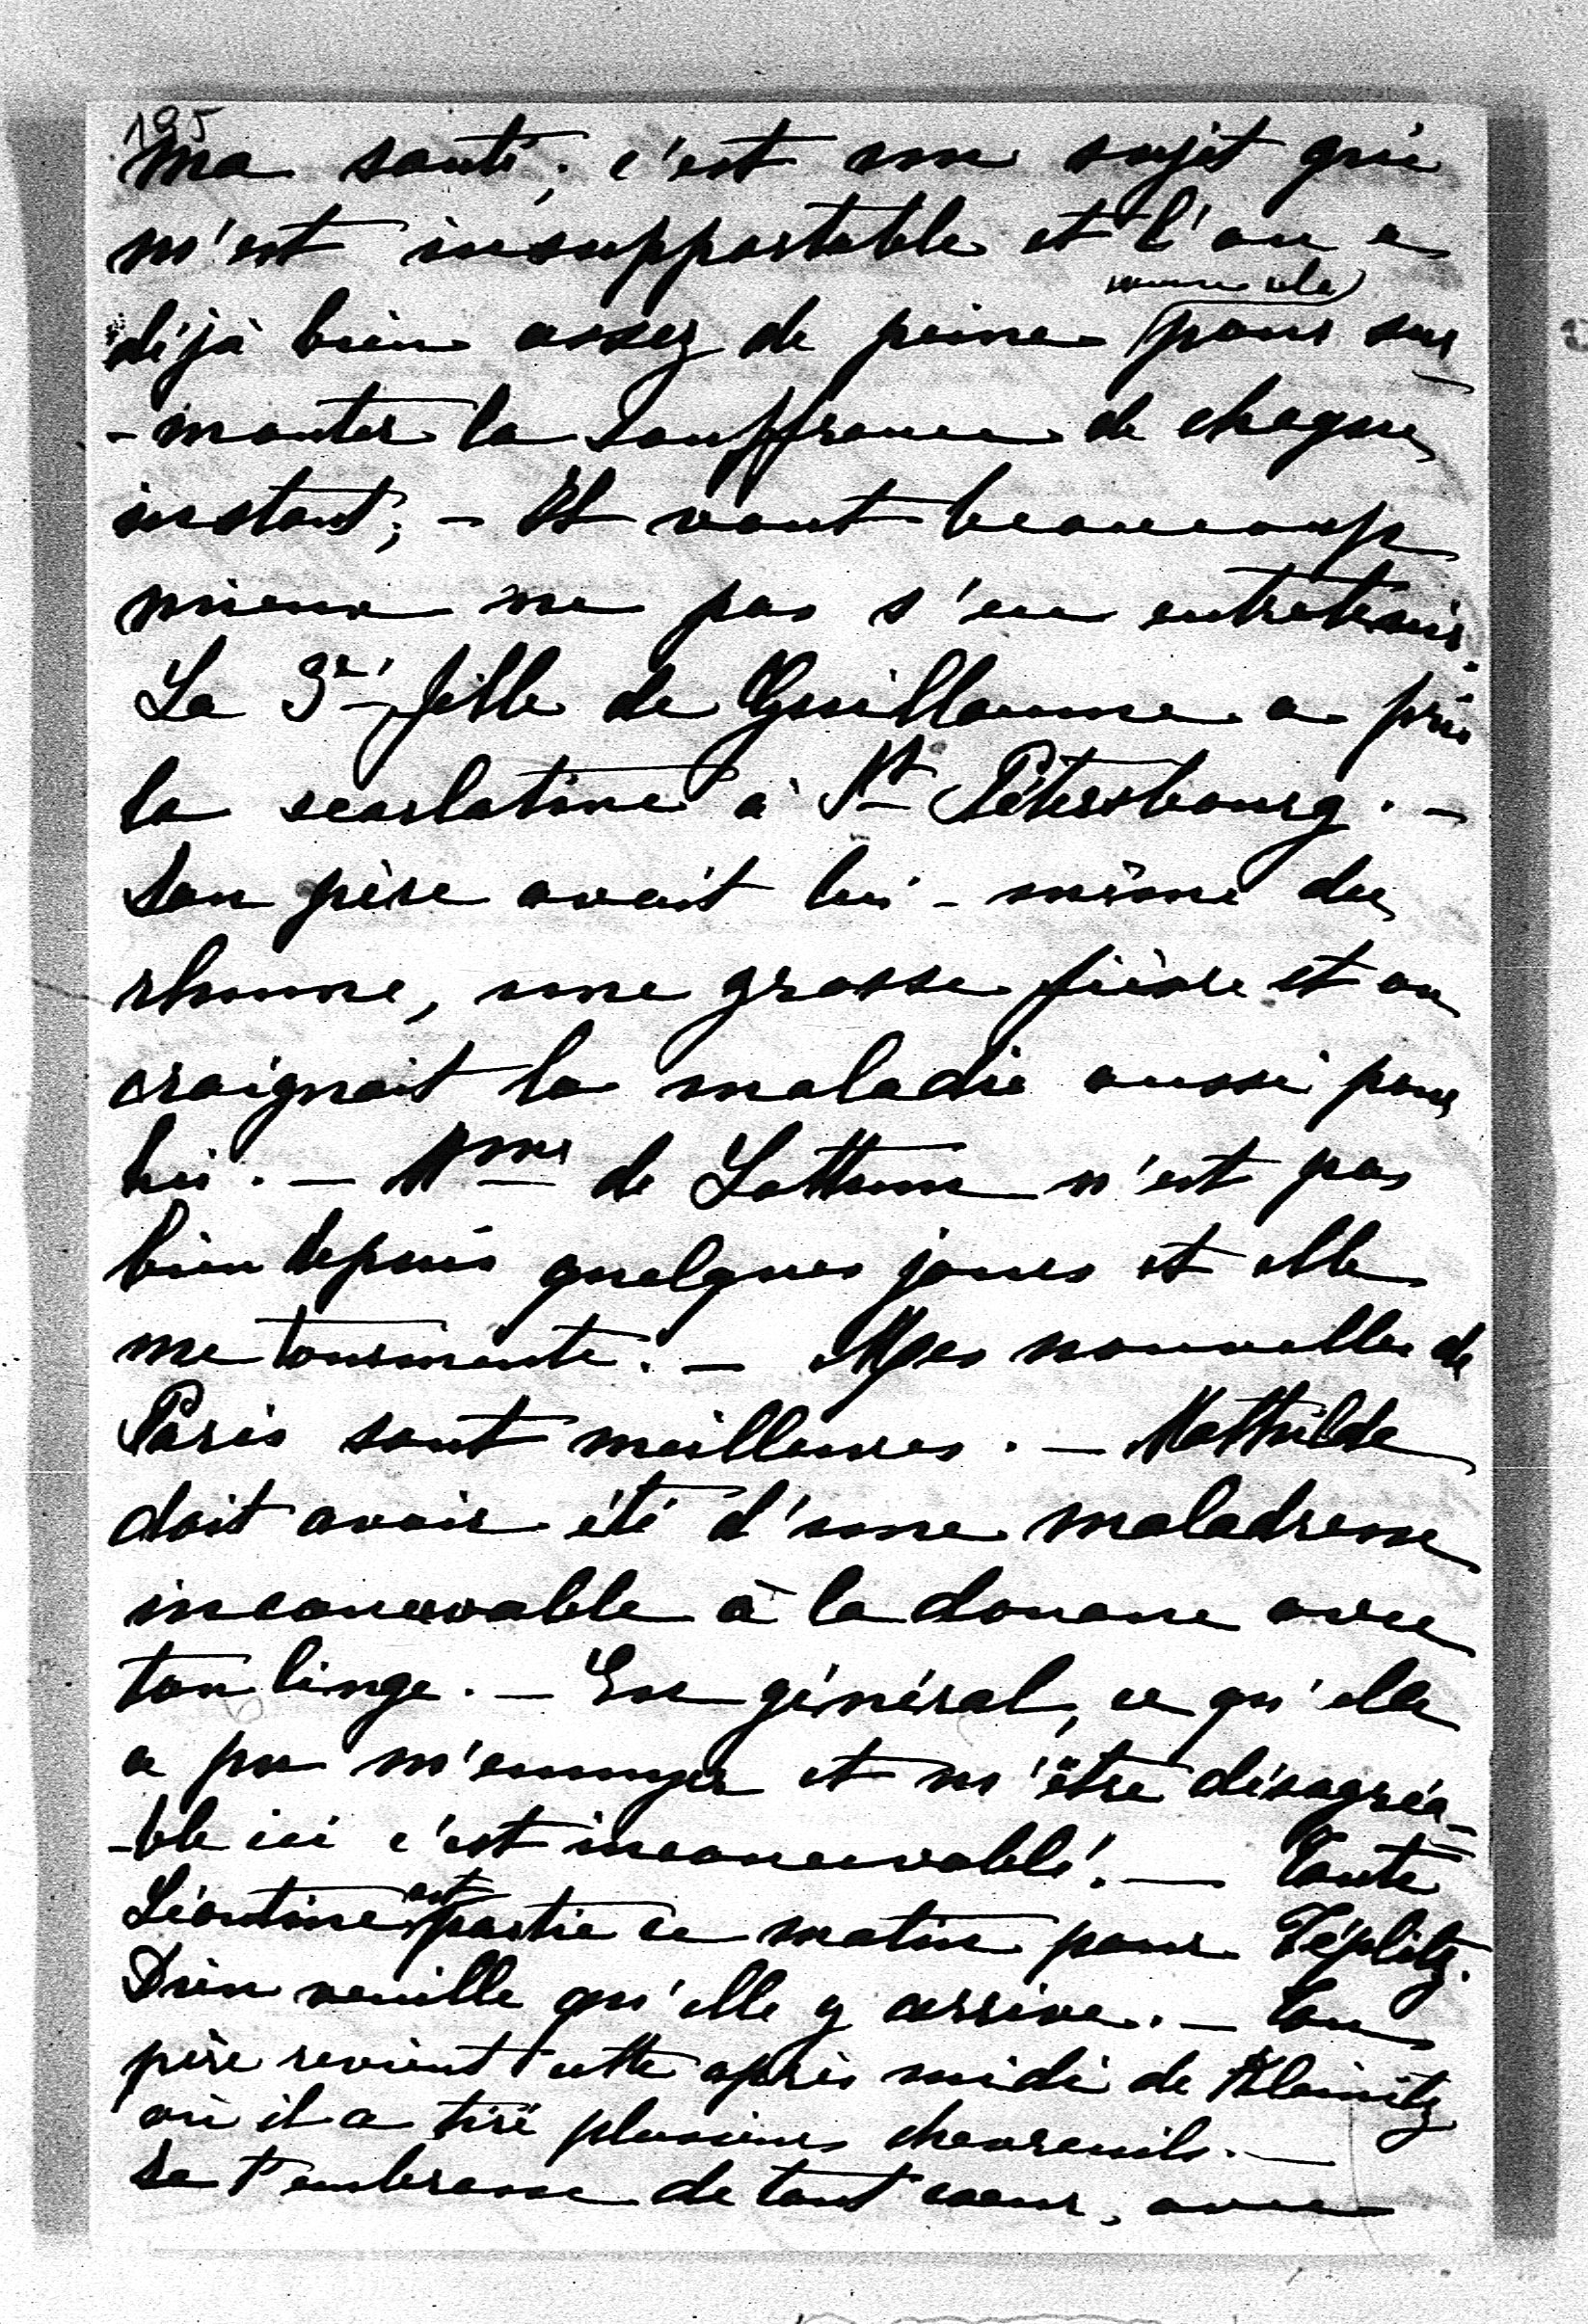 195
ma santé; c'est un sujet qui
m'est insupportable et l'on a
déjà bien assez de peine pour sur
-monter la souffrance de chaque
instant; - Il vaut beaucoup
mieux ne pas s'en entretenir.
La 3e fille de Guillaume a pris
la scarlatine à St Pétersbourg. -
Son père avait lui-même du
rhume, une grosse fièvre et on
craignait la maladie aussi pour
lui. - Mme de Lottum n'est pas
bien depuis quelques jours et elle
me tourmente. - Mes nouvelles de
Paris sont meilleures. - Mathilde
doit avoir été d'une maladresse
inconcevable à la douane avec
ton linge. - En général, ce qu'elle
a pu m'ennuyer et m'être désagréa-
-ble ici c'est inconcevable! - Tante
Léontine est partie ce matin pour Téplitz.
Dieu veuille qu'elle y arrive. - Ton
père revient cette après midi de Kleinitz
où il a tiré plusieurs chevreuils. -
Je t'embrasse de tout coeur, avec